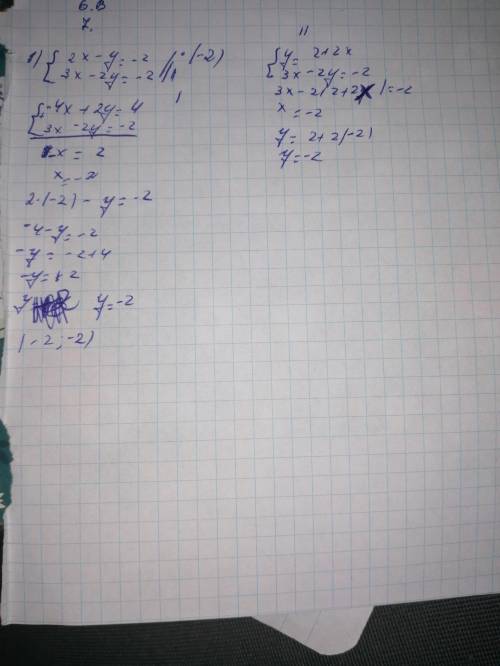 6. В
7.
1) { 2x - y = -2 // · (-2)
3x - 2y = -2 //
I
{ -4x + 2y = 4
3x - 2y = -2
-x = 2
x = -2
2·(-2) - y = -2
-4 - y = -2
-y = -2 + 4
-y = +2
y y = -2
(-2; -2)
II
{ y = 2 + 2x
3x - 2y = -2
3x - 2(2 + 2x) = -2
x = -2
y = 2 + 2(-2)
y = -2